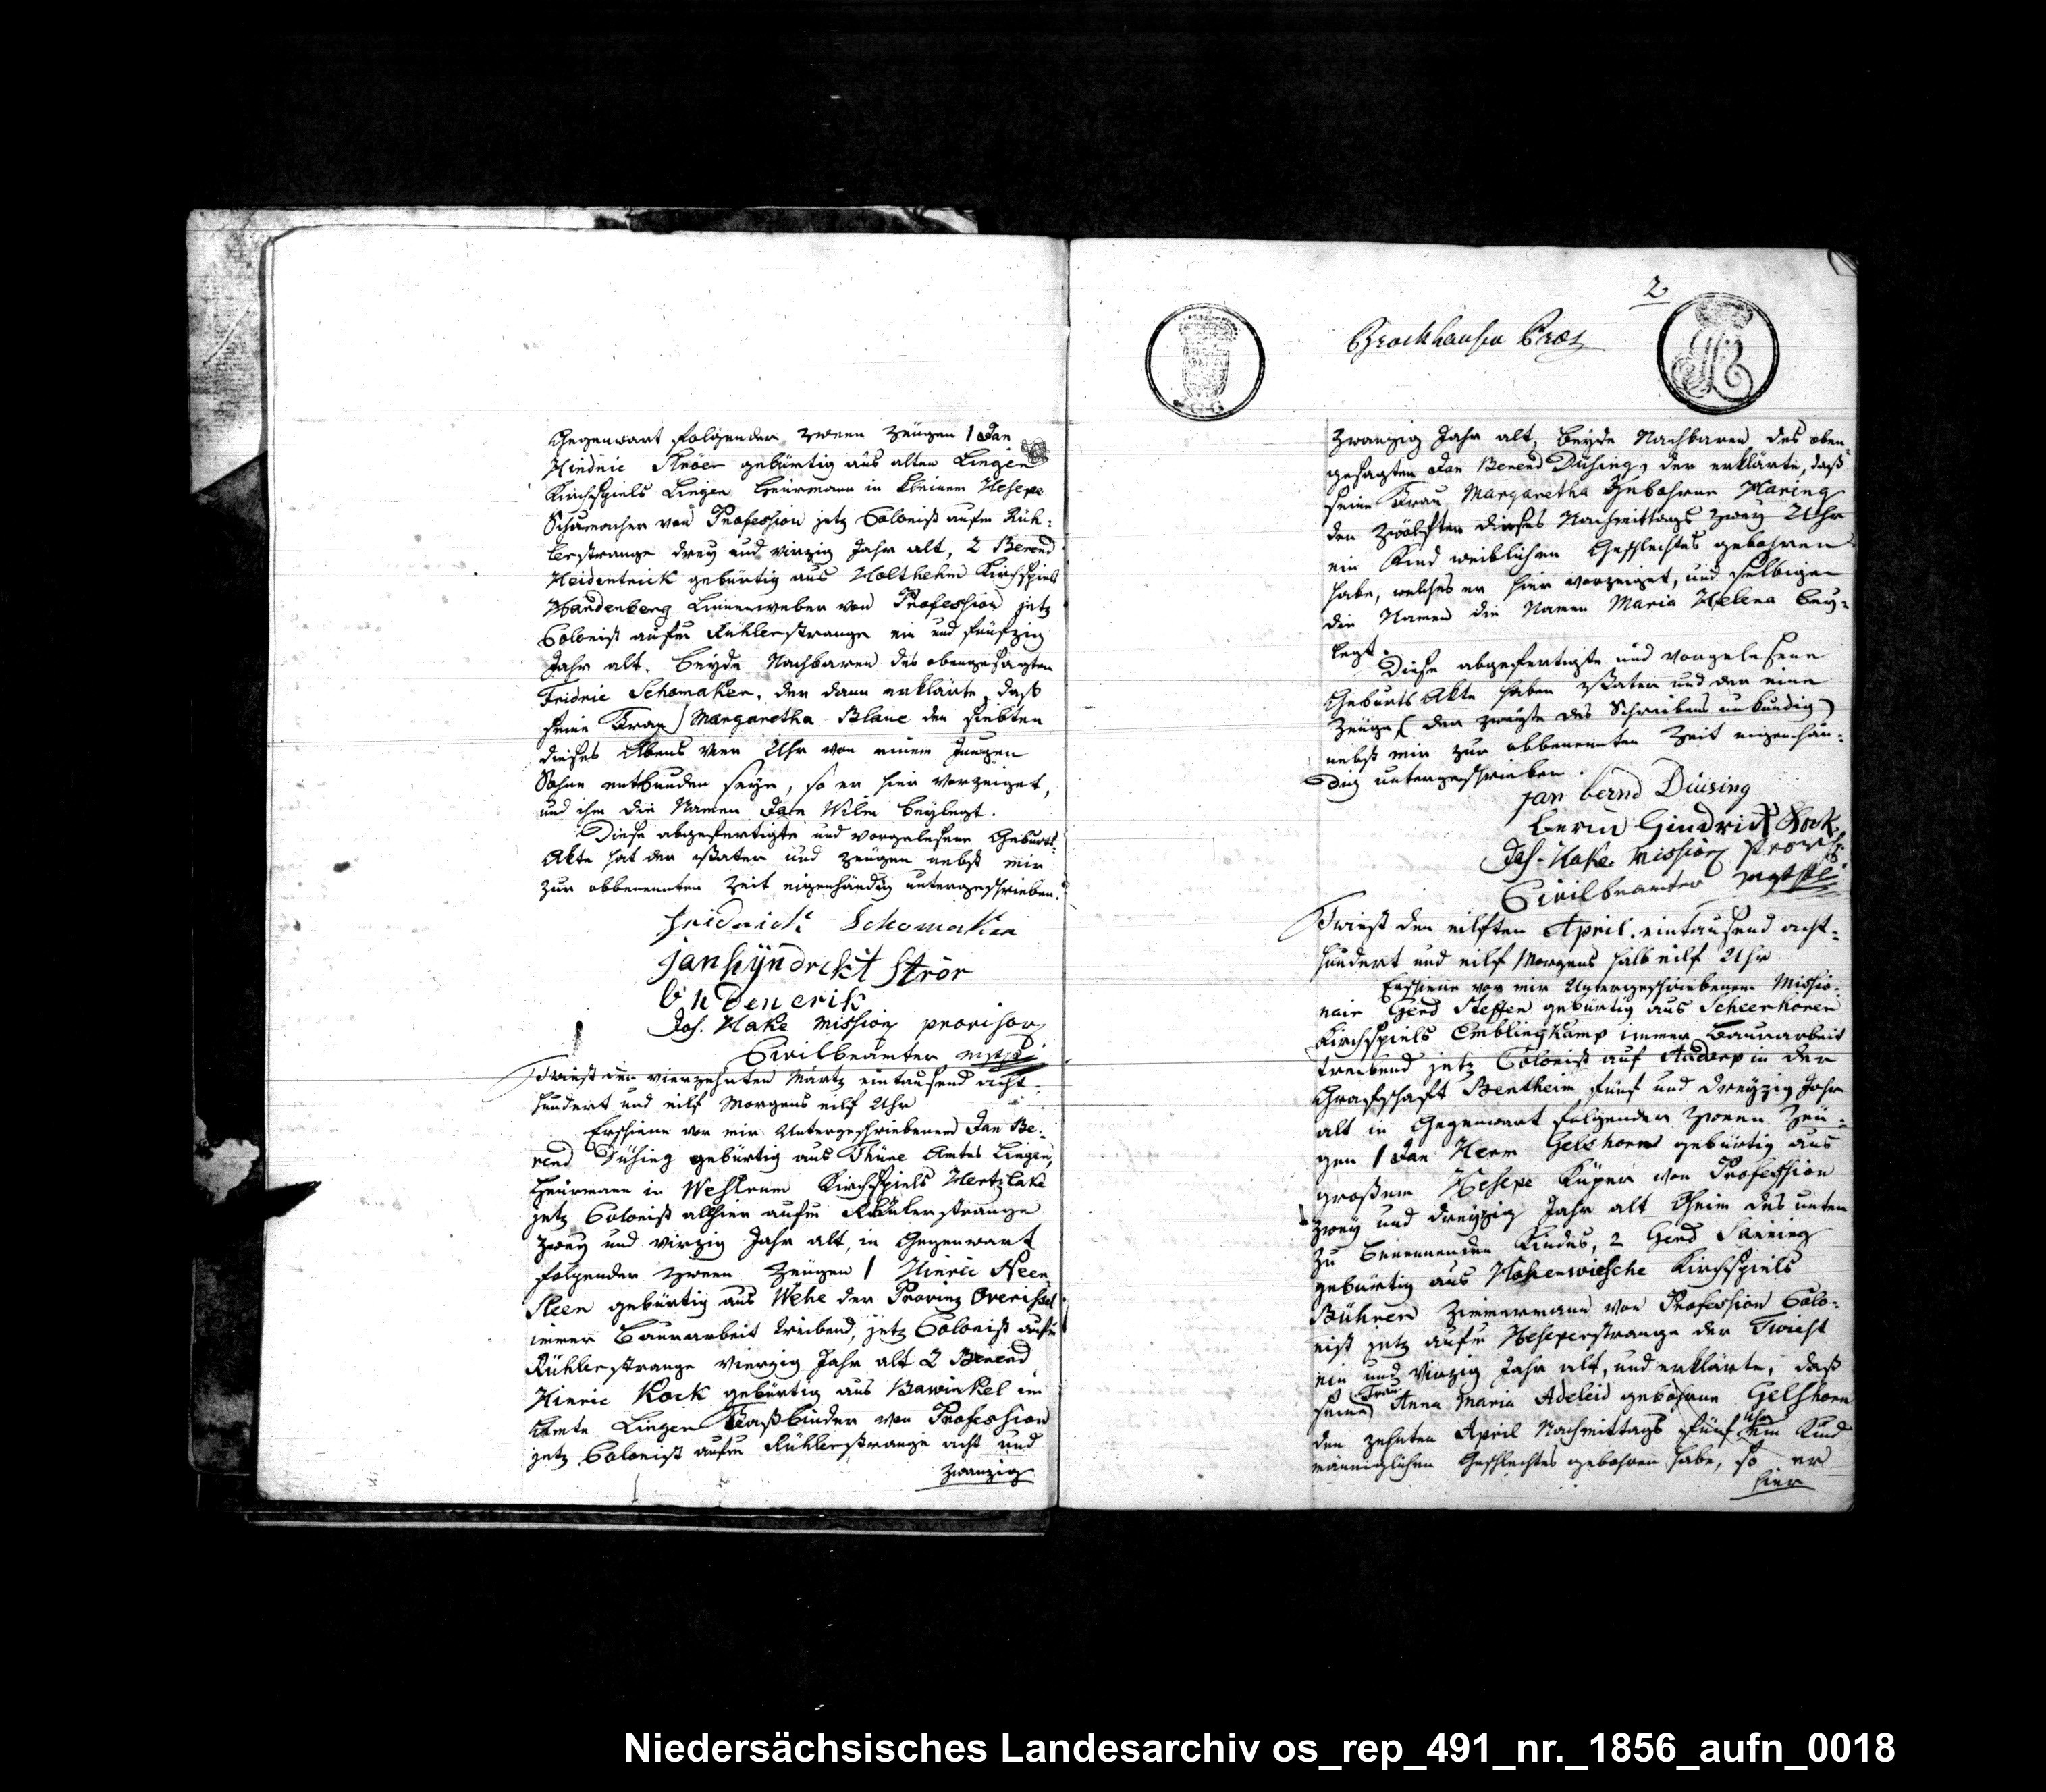 Gegenwart folgender zween Zeugen 1 Jan
Hindric Ströer gebürtig aus alten Lingen
Kirchspiels Lingen Heürmann in kleinem Hesepe
Schumacher von Profession jetz Colonist aufm Rüh-
lerstrange drey und virzig Jahr alt, 2 Berend
Heidentrick gebürtig aus Holthehm Kirchspiels
Hardenberg Linnenweber von Profession jetz
Colonist aufm Rühlerstrange ein und fünfzig
Jahr alt. beyde Nachbaren des obengesagten
Fridric Schomaker, der dann erklärte, daß
seine Frau Margaretha Blanc den siebten
dieses Abens vier Uhr von einem jungen
Sohne entbunden seye, so er hier vorzeiget,
und ihm die Namen Jann Wilm beylegt.
Diese abgefertigte und vorgelesene Geburts-
Akte hat der Vater und Zeugen nebst mir
zur obbenennten Zeit eigenhändig unterzeschrieben.
fridrich Schomaker
jan hÿndrckt Strör
Jos. Hake Mission provisor
Civilbeamter mpp
Twist den vierzehnten Märtz eintausend acht-
hundert und eilf Morgens eilf Uhr
Erschiene vor mir Unterzeschriebenen Jan Be-
rend Düsing gebürtig aus Thüne Amtes Lingen,
Heürmann in Wehtrum Kirchspiels Hertzlake
jetz Colonist allhier aufm Rühlerstrange
zwey und virzig Jahr alt, in Gegenwart
folgender zween Zeugen 1 Hinric Neen
Steen gebürtig aus Wehe der Provinz Overissel
immer Bauarbeit treibend, jetz Colonist aufm
Rühlerstrange vierzig Jahr alt 2 Berend
Hinric Kock gebürtig aus Bawinkel im
Amte Lingen Faßbinder von Profession
jetz Colonist aufm Rühlerstrange acht und
zwanzig
2
Brockhausen Præs
zwanzig Jahr alt, beyde Nachbaren des oben-
gesagten Jan Berend Düsing, der erklärte, daß
seine Frau Margaretha Gebohrne Haring
den zwölften dieses Nachmittags zwey Uhr
ein Kind weiblichen Geschlechtes gebohren
habe, welches er hier vorzeiget, und selbigen
die Namen die Namen Maria Helena bey-
legt.
Diese abgefertigte und vorgelesene
Geburts Akte haben Vater und der eine
Zeuge (der zweyte des Schreibens unkundig)
nebst mir zur obbenennten Zeit eigenhän-
dig unterzeschrieben.
jan bernd Düsing
Bernd Hindrick Kock
Jos. Hake Mission provisor
Civilbeamter mpp
Twist den eilften April eintausend acht-
hundert und eilf Morgens halb eilf Uhr
Erschiene vor mir Unterzeschriebenem Missio-
nair Gerd Steffen gebürtig aus Scheerhoren
Kirchspiels Emblingkamp immer Bauarbeit
treibend jetz Colonist auf Audorp in der
Grafschaft Bentheim fünf und dreyzig Jahr
alt in Gegenwart folgender zween Zeu-
gen 1 Jan Herm Gelshorn gebürtig aus
großem Hesepe Küper von Profession
zwey und dreyzig Jahr alt Oheim des unten
zu benennenden Kindes, 2 Gerd Sanning
gebürtig aus Hohenwiesche Kirchspiels
Bühren Zimmermann von Profession Colo-
nist jetz aufm Heseperstrange der Twist
ein und virzig Jahr alt, und erklärte, daß
seine Frau Anna Maria Adeleid gebohrne Gelshorn
den zehnten April Nachmittags fünf Uhr ein Kind
männiglichen Geschlechtes gebohren habe, so er
hier
Niedersächsisches Landesarchiv os_rep_491_nr._1856_aufn_0018